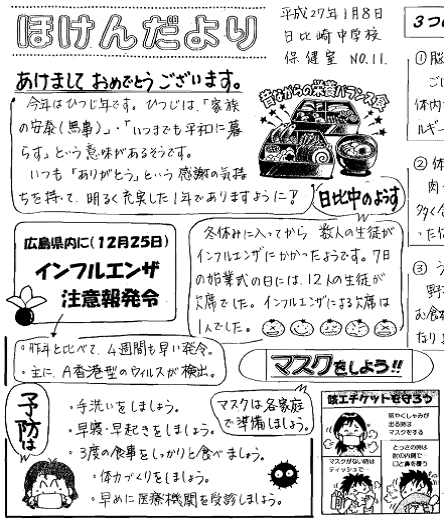 ほけんだより
平成27年1月8日
日比崎中学校
保健室 NO.11.
あけまして おめでとうございます。
今年はひつじ年です。ひつじは、「家族
の安泰(無事)」・「いつまでも平和に暮
らす」という意味があるそうです。
いつも「ありがとう」という感謝の気持
ちを持って、明るく充実した1年でありますように!
昔ながらの栄養バランス食
日比中のようす
冬休みに入ってから 数人の生徒が
インフルエンザにかかったようです。7日
の始業式の日には、12人の生徒が
欠席でした。インフルエンザによる欠席は
1人でした。
広島県内に(12月25日)
インフルエンザ
注意報発令
・昨年と比べて、4週間も早い発令。
・主に、A香港型のウィルスが検出。
マスクをしよう!!
予防は
・手洗いをしましょう。
・早寝・早起きをしましょう。
・3度の食事をしっかりと食べましょう。
・体力づくりをしましょう。
・早めに医療機関を受診しましょう。
マスクは各家庭
で準備しましょう。
咳エチケットを守ろう
咳やくしゃみが
出る時は
マスクをする
マスクがない時は
ティッシュで…
とっさの時は
肘の内側で
口と鼻を覆う
3つの
①脳
体内
ルギー
②体
肉・
多く
った
③う
野
お食
なりま